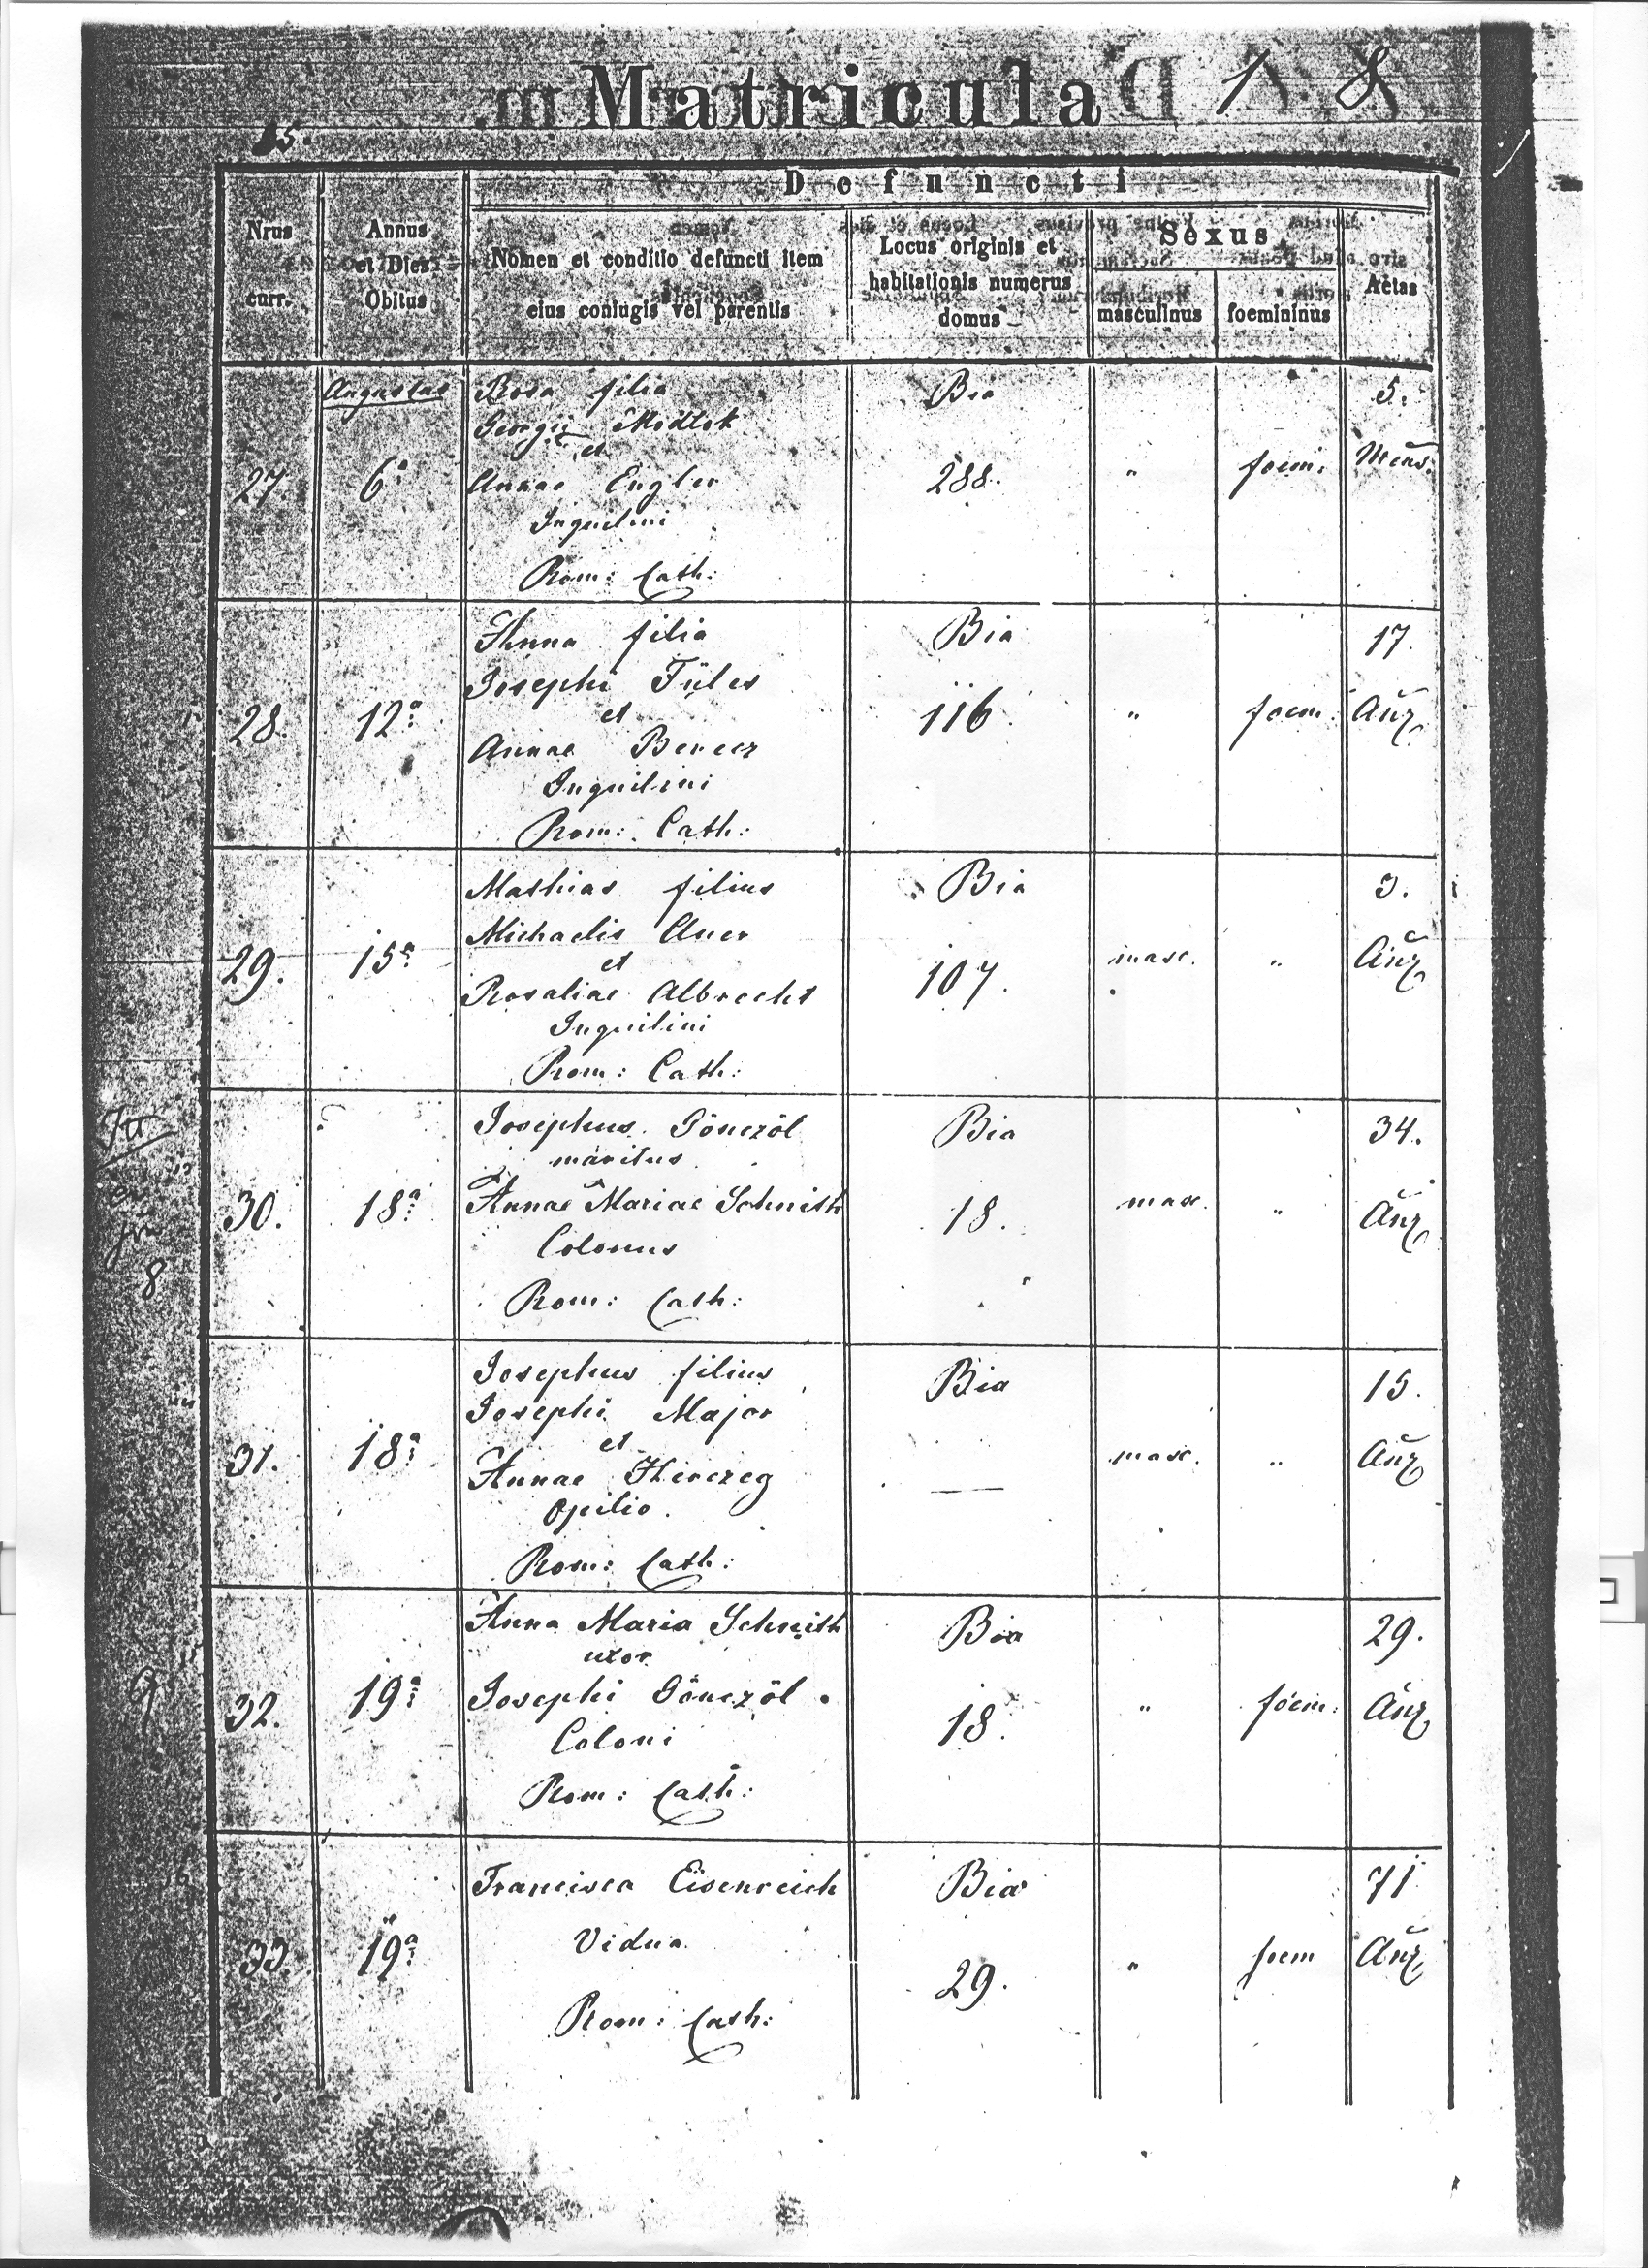 Matricula
18
5.
Defuncti
Nrus curr.
Annus et Dies Obitus
Nomen et conditio defuncti item
eius coniugis vel parentis
Locus originis et
habitationis numerus
domus
Sexus
masculinus
foemininus
Aetas
Augustus
Rosa filia
Georgii
et
Annae Engler
Inquilini
Rom: Cath:
27.
6a
Bia
288.
"
foem:
5.
Mens.
Anna filia
Josephi Füles
et
Annae Bencz
Inquilini
Rom: Cath:
28.
12a
Bia
116.
"
foem:
17.
Mathias filius
Michaelis Auer
et
Rosaliae Albrecht
Inquilini
Rom: Cath:
29.
15a
Bia
107.
masc.
"
3.
Josephus Gönczöl
maritus
Annae Mariae Schmith
Colonus
Rom: Cath:
30.
18a
Bia
18.
masc.
"
34.
Josephus filius
Josephi Major
et
Annae Herczeg
Opilio.
Rom: Cath:
31.
18a
Bia
—
masc.
"
15.
Anna Maria Schmith
uxor
Josephi Gönczöl
Coloni
Rom: Cath:
32.
19a
Bia
18.
"
foem:
29.
Francisca Eisenreich
Vidua
Rom: Cath:
33.
19a
Bia
29.
"
foem
71